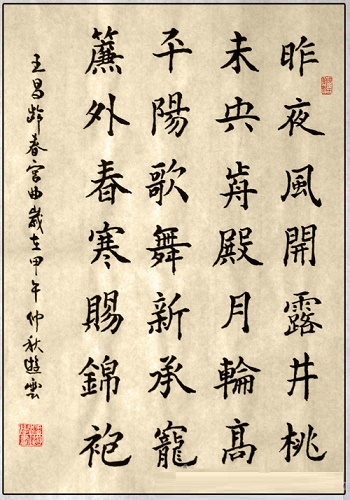 昨夜風開露井桃
未央歬殿月輪高
平陽歌舞新承寵
簾外春寒賜錦袍
王昌齡春宮曲歲在甲午仲秋遊雲